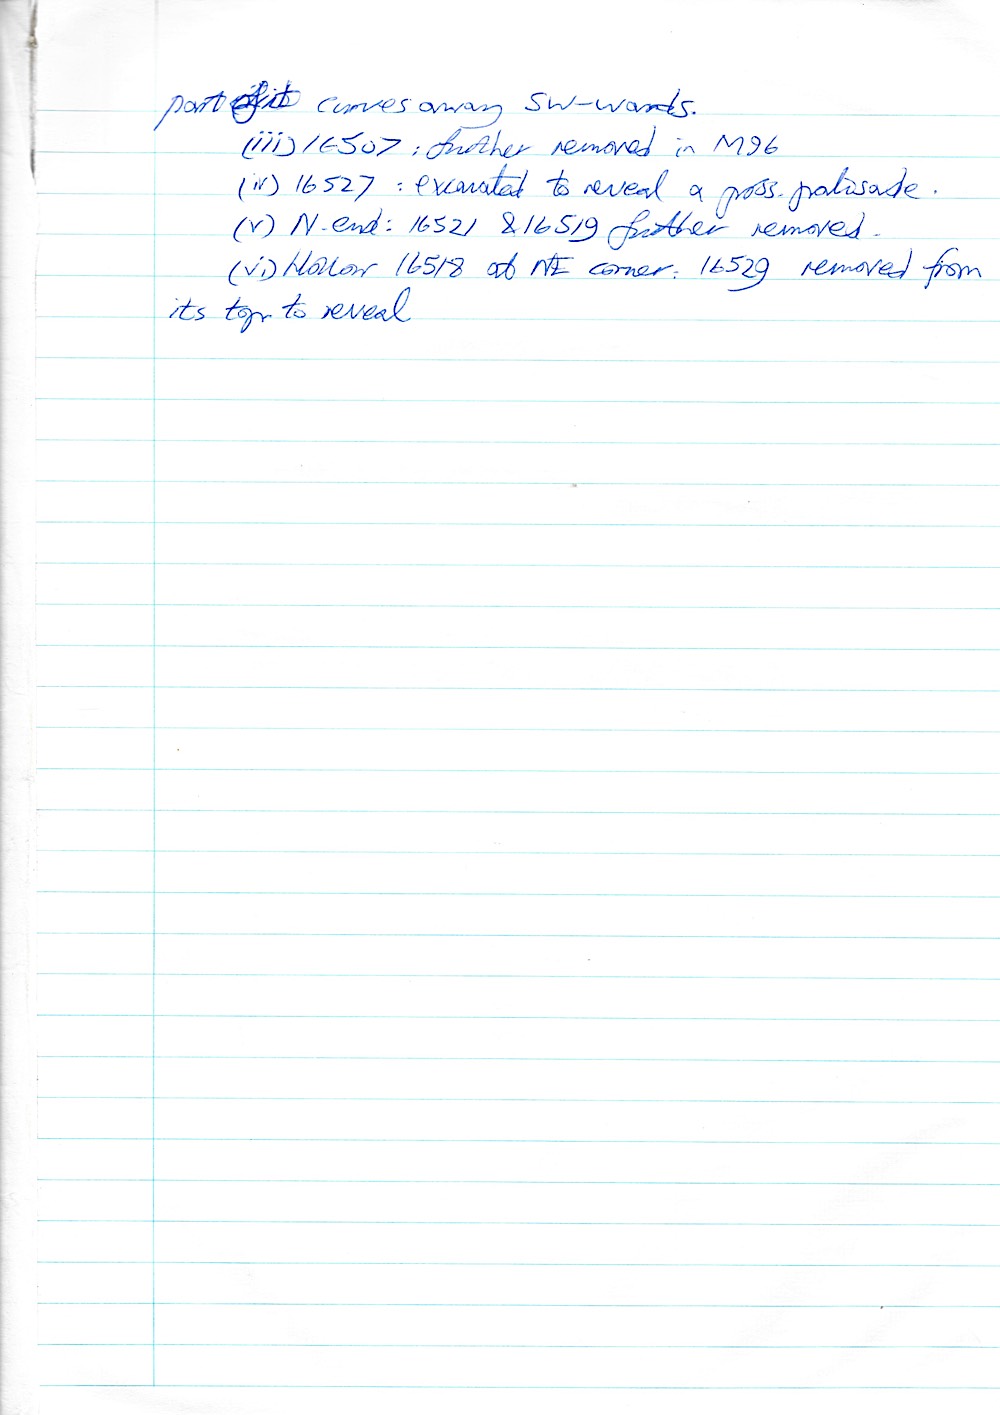 part of it curves away SW-wards.
(iii) 16507: further removed in M96
(iv) 16527: excavated to reveal a poss. palisade.
(v) N. end: 16521 & 16519 further removed.
(vi) Hollow 16518 at NE corner: 16529 removed from
its top to reveal